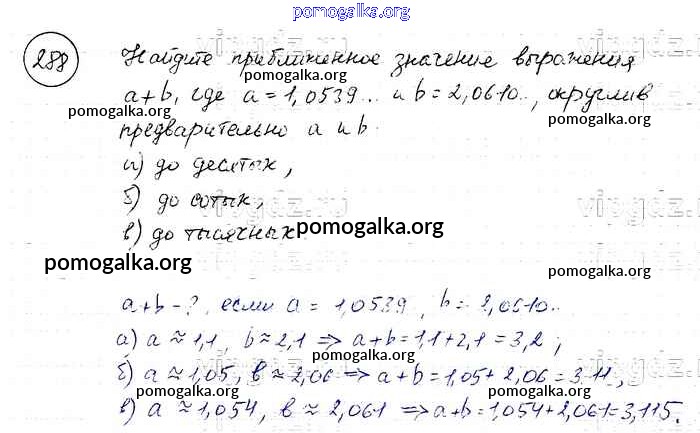 pomogalka.org
288
Найдите приближенное значение выражения
pomogalka.org
a+b, где a=1,0539... и b=2,0610..., округлив
pomogalka.org
предварительно a и b.
а) до десятых,
pomogalka.org
б) до сотых,
в) до тысячных.
pomogalka.org
pomogalka.org
pomogalka.org
a+b-?, если a=1,0539.., b=2,0610..
pomogalka.org
а) a≈1,1, b≈2,1 => a+b=1,1+2,1=3,2;
pomogalka.org
б) a≈1,05, b≈2,06 => a+b=1,05+2,06=3,11,
pomogalka.org
в) a≈1,054, b≈2,061 => a+b=1,054+2,061=3,115.
pomogalka.org